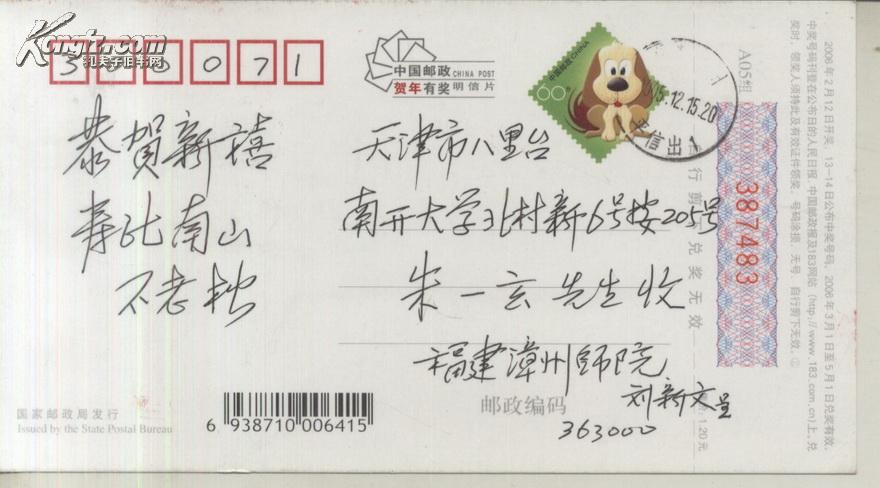 Kongfz.com
孔夫子旧书网
300071
中国邮政 CHINA POST
贺年有奖明信片
中国邮政 CHINA
60
2005.12.15.20
恭贺新禧
寿比南山
不老松
天津市八里台
南开大学北村新6号楼205号
朱一玄先生收
福建漳州师院
刘新文呈
邮政编码
363000
国家邮政局发行
Issued by the State Postal Bureau
6 938710 006415
A05组
387483
自行剪下兑奖无效
1.20元
2006年2月12日开奖，13—14日公布中奖号码，2006年3月1日至5月1日兑奖有效。
中奖号码刊登在公布日的人民日报、中国邮政报及183网站（http://www.183.com.cn)上。兑
奖时，领奖人须持此及有效证件领奖，号码涂损、无号、自行剪下无效。